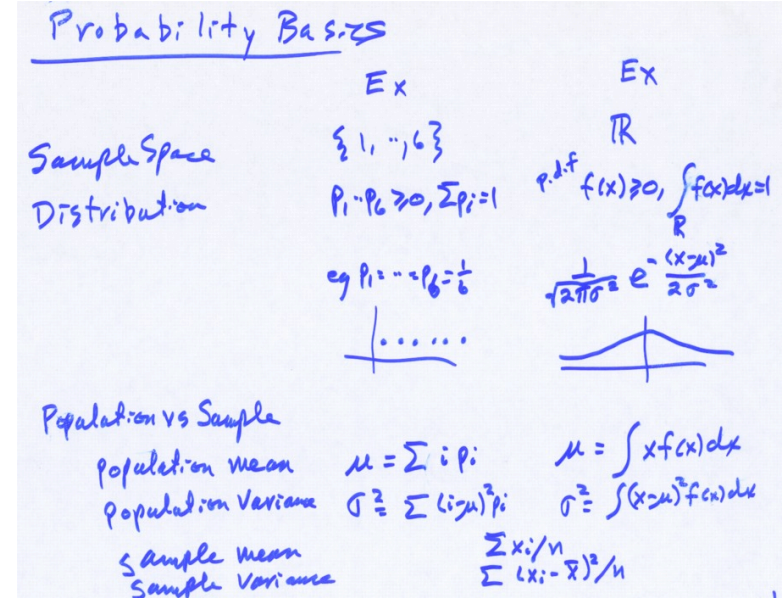 Probability Basics
Ex Ex
Sample Space {1, .., 6} ℝ
Distribution p₁..p₆ ≥ 0, Σpᵢ=1 p.d.f f(x) ≥ 0, ∫_ℝ f(x)dx=1
eg p₁ = .. = p₆ = 1/6 1/√(2πσ²) e^-(x-μ)²/2σ²
Population vs Sample
population mean μ = Σ i pᵢ μ = ∫ x f(x) dx
population variance σ² = Σ (i-μ)² pᵢ σ² = ∫(x-μ)² f(x) dx
sample mean Σ xᵢ/n
sample variance Σ (xᵢ - x̄)²/n